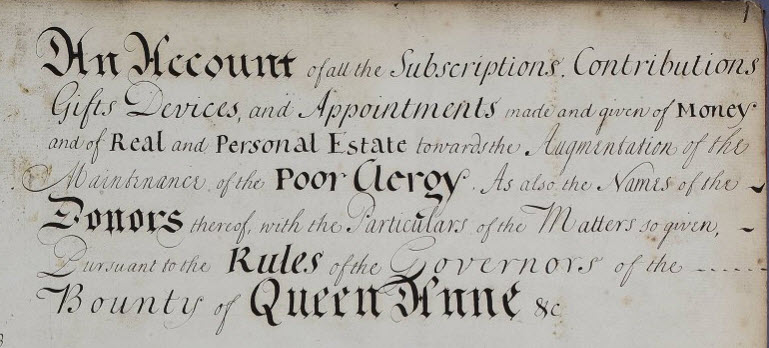 An Account of all the Subscriptions, Contributions
Gifts Devices, and Appointments made and given of Money
and of Real and Personal Estate towards the Augmentation of the
Maintenance of the Poor Clergy. As also the Names of the
Donors thereof, with the Particulars of the Matters so given,
Pursuant to the Rules of the Governors of the
Bounty of Queen Anne &c